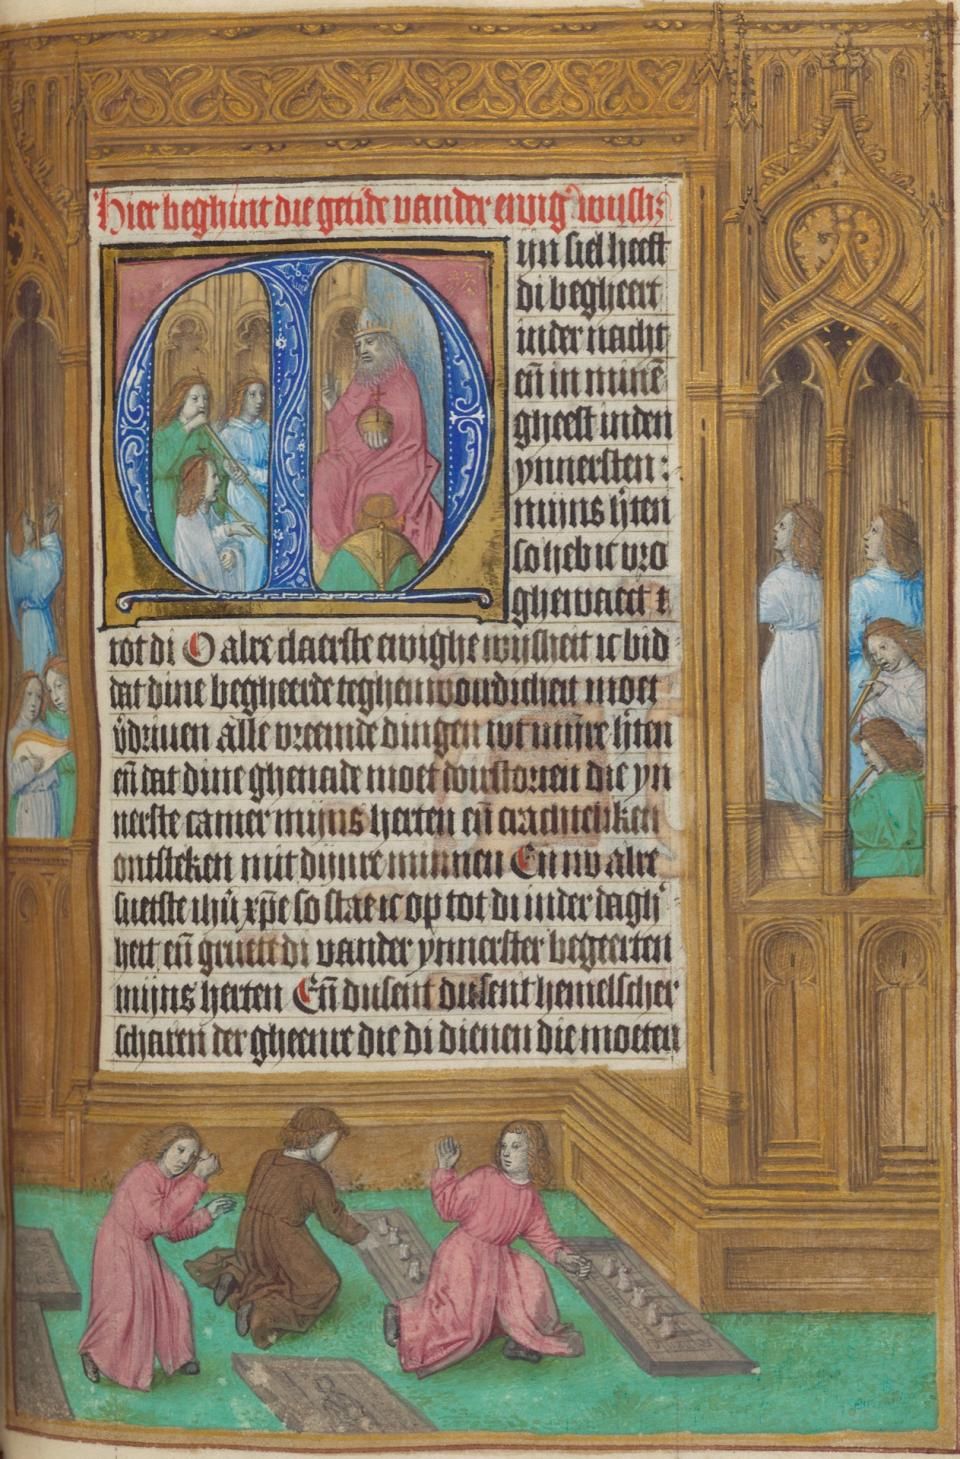 Hier beghint die getide vander ewig᷒ wijsh᷒
Mijn siel heeft
di begheert
inder nacht
en̄ in minē
gheest inden
ynnersten :
mijns h̓ten
so heb ic vro
ghewaect t
tot di O alre claerste ewighe wijsheit ic bid
dat dine begheerde teghenwordicheit moet
v̓driuen alle vreemde dingen wt minre h̓ten
en̄ dat dine ghenade moet doirstorten die yn
nerste camer mijns herten en̄ crachteliken
ontsteken mit dijnre minnen En̄ nv alre
suetste ihū xp̄e so stae ic op tot di inder dagh᷒
heit en̄ gruete di vander ynnerster begeerten
mijns herten En̄ dusent dusent hemelscher
scharen der gheenre die di dienen die moeten